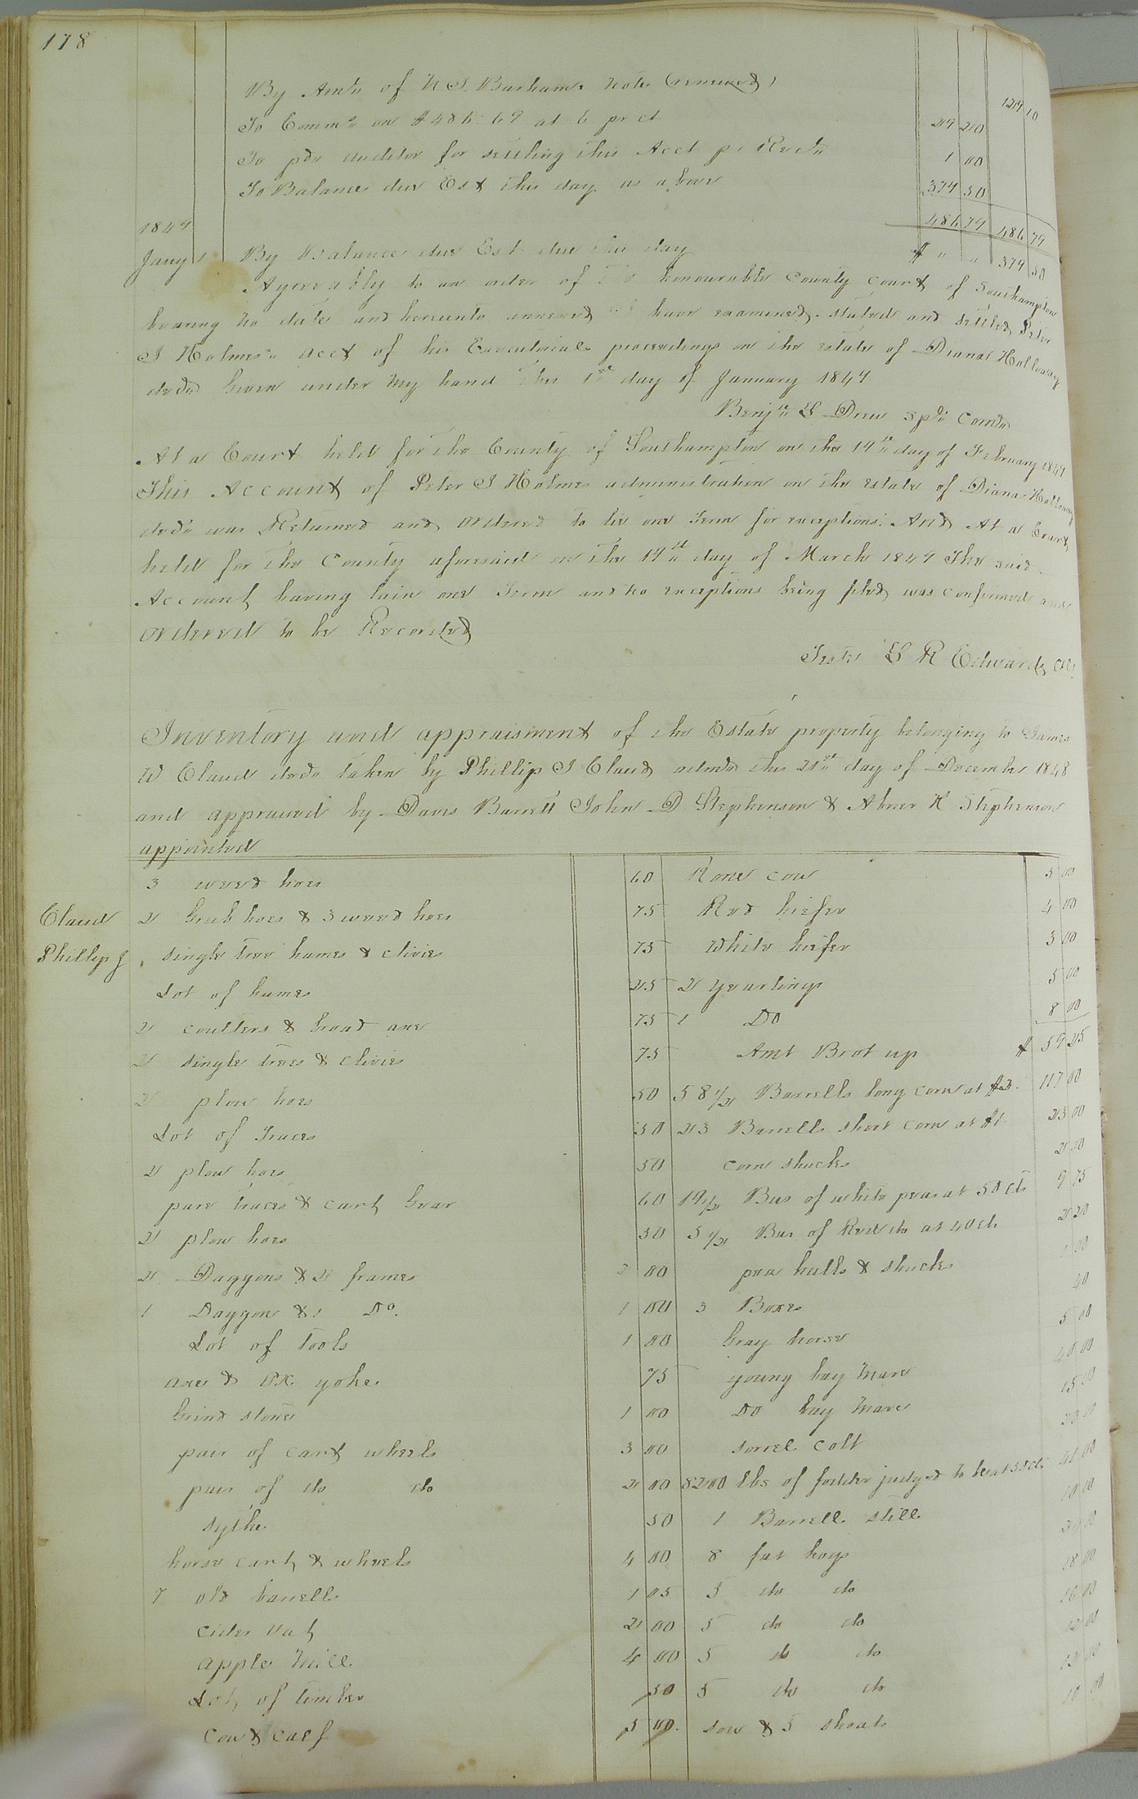 178
By Amtn of N S Barhams note (removed)
129 10
To Commn on $486.69 at 6 pr ct 29 20
To pd auditor for settling this Acct pr Rectn 1 00
To Balance due Est this day as above 374 50
486 79 486 79
1847
Jany 1 By Balance due Est due this day $ " " 374 50
Agreeably to an order of the honourable County Court of Southampton
bearing no date and hereunto annexed I have examined, stated and settled Peter
J Holmes's acct of his Executorial proceedings on the estate of Diana Holloway
decd Given under my hand this 1st day of January 1847
Benjn G Drew Spl Comr
At a Court held for the County of Southampton on the 14th day of February 1847
This Account of Peter J Holmes administration on the estate of Diana Holloway
decd was Returned and ordered to lie one Term for exceptions. And At a Court
held for the County aforesaid on the 14th day of March 1847 The said
Account having lain one Term and no exceptions being filed, was confirmed and
ordered to be Recorded
Teste L R Edwards Clk
Inventory and appraisment of the Estate property belonging to James
W Claud decd taken by Phillip J Claud admr this 21st day of December 1848
and appraised by Davis Barrett John D Stephenson & Abner H Stephenson
appointed
3 weed hoes 60 Rone cow 5 00
Claud 2 Grub hoes & 3 weed hoes 75 Red hiefer 4 00
Phillip J single tree hames & clivis 75 White hiefer 3 00
Lot of hames 25 2 yearlings 5 00
2 coulters & broad axe 75 1 Do 8 00
2 single trees & clivis 75 Amt Brot up $ 59 25
2 plow hoes 50 58 1/2 Barrells long corn at $2 117 00
Lot of Traces 50 23 Barrells short corn at $1 23 00
2 plow hoes 50 corn shucks 2 00
pare traces & cart Gear 60 19 1/2 Bus of white peas at 50 cts 9 75
2 plow hoes 50 5 1/2 Bus of Red do at 40 cts 2 20
2 Daggons & 2 frames 2 00 pea hulls & shucks 1 00
1 Daggon & 1 Do. 1 00 3 Boxes 40
Lot of Tools 1 00 Gray horse 5 00
axes & ox yoke 75 young bay Mare 40 00
Grind stones 1 00 Do bay Mare 15 00
pair of cart wheels 3 00 sorrel colt 30 00
pair of do do 2 00 8200 lbs of fodder judged to be at 50 cts 41 00
sythe 50 1 Barrell still 10 00
horse cart & wheels 4 00 8 fat hogs
7 old barrells 1 05 5 do do 18 00
cider vat 2 00 5 do do
apple Mill 4 00 5 do do
Lot of timber 50 5 do do
cow & calf 5 00 sow & 5 shoats 10 00